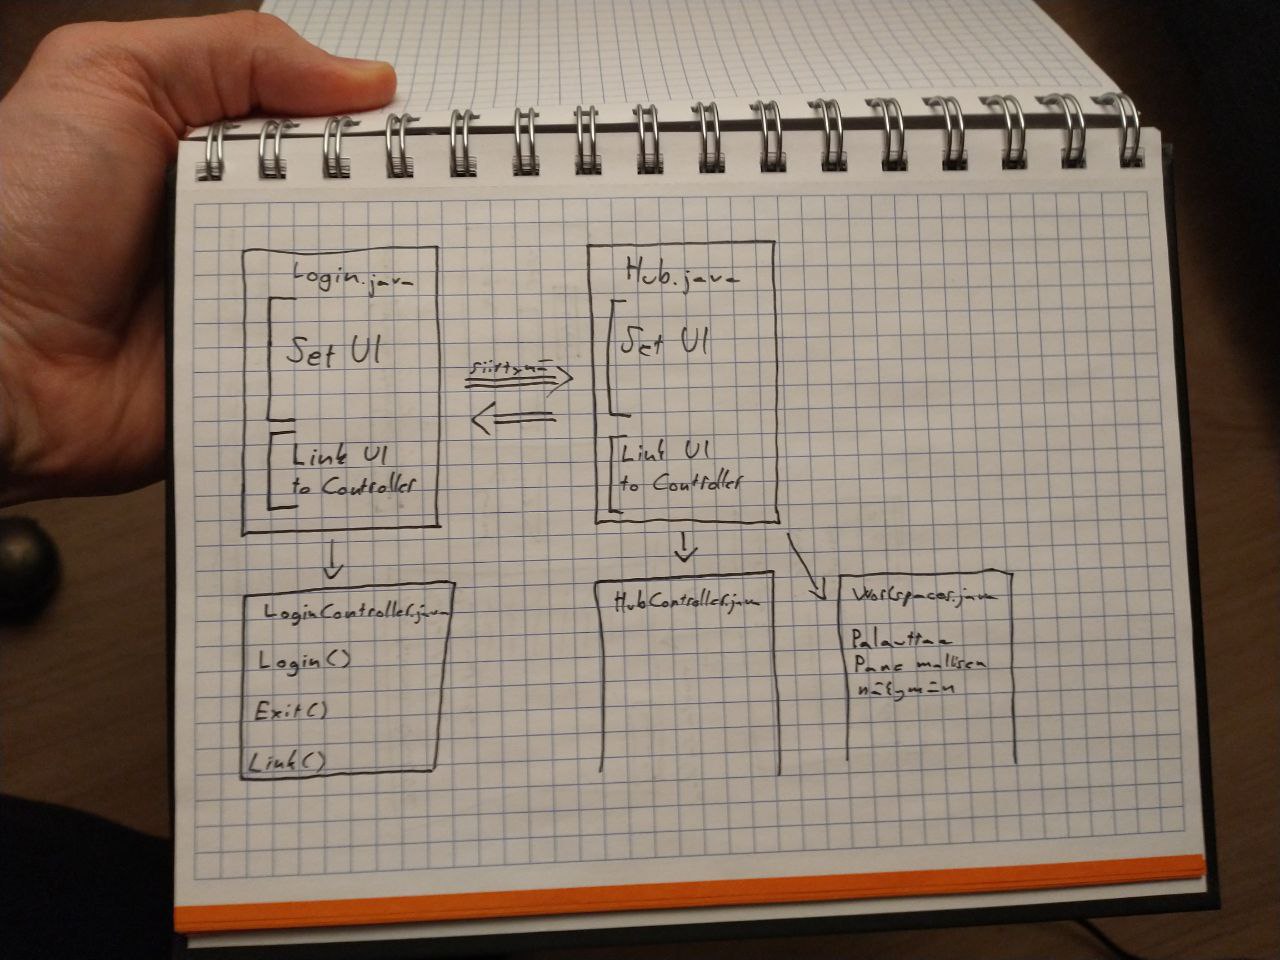 Login.java
Set UI
Link UI
to Controller
siirtymä
Hub.java
Set UI
Link UI
to Controller
LoginController.java
Login()
Exit()
Link()
HubController.java
Workspaces.java
Palauttaa
Pane mallisen
näkymän